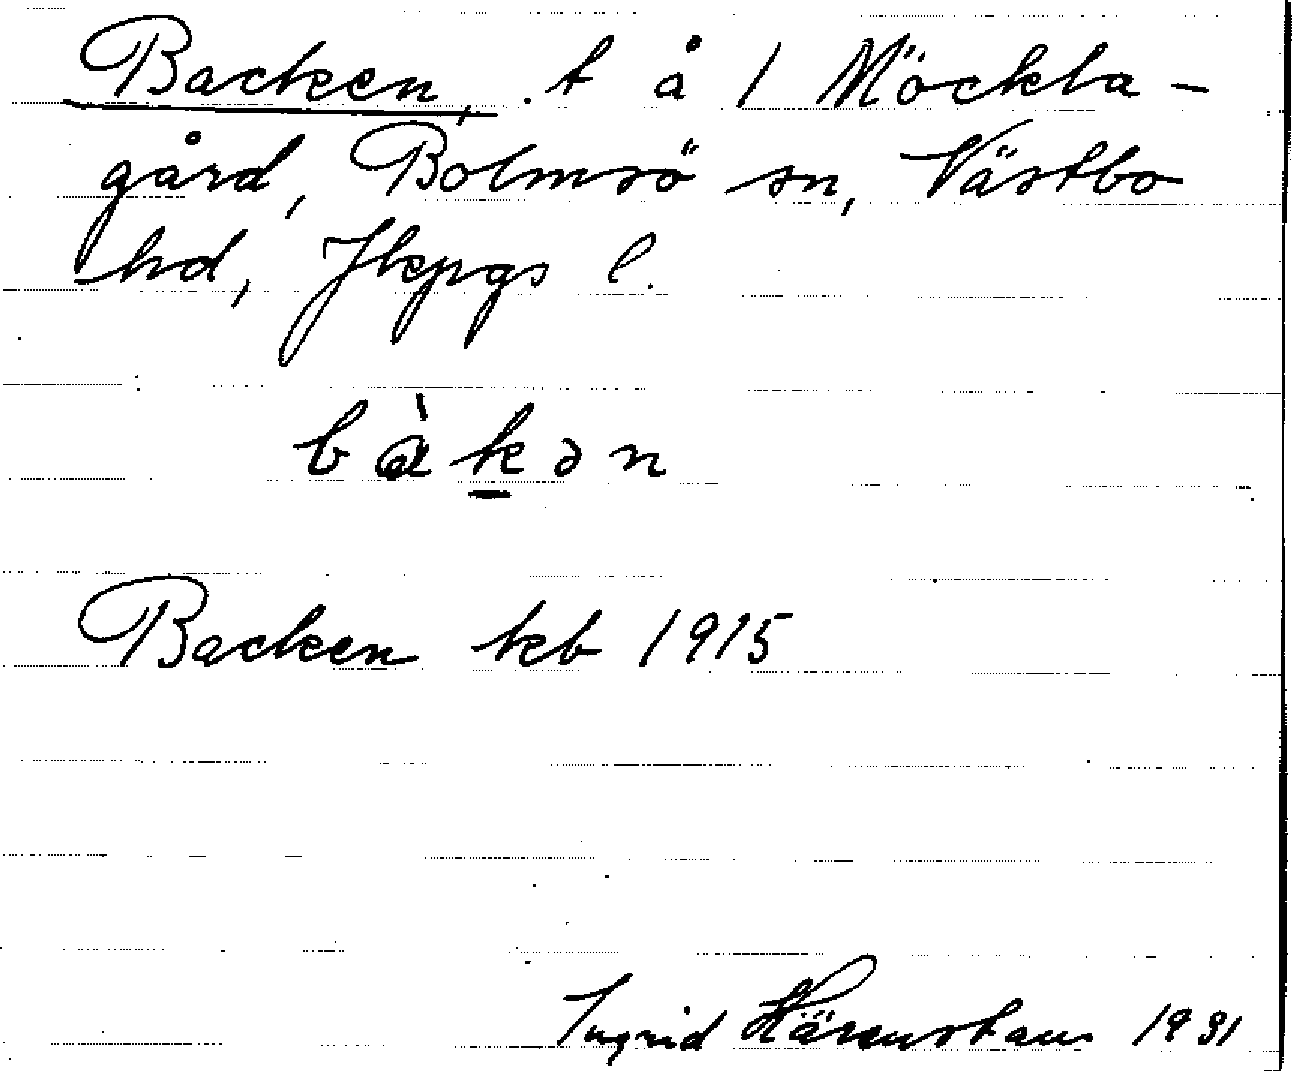 Backen, t å 1 Möckla-
gård, Bolmsö sn, Västbo
hd, Jkpgs l.
bàkən
Backen kb 1915
Ingrid Härenstam 1931